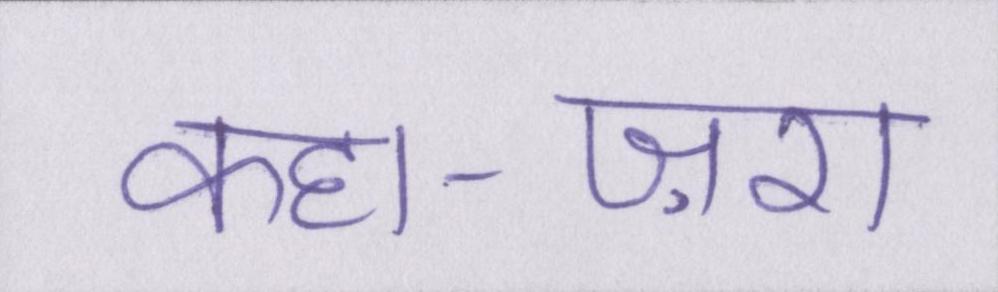 कहा-ज़रा